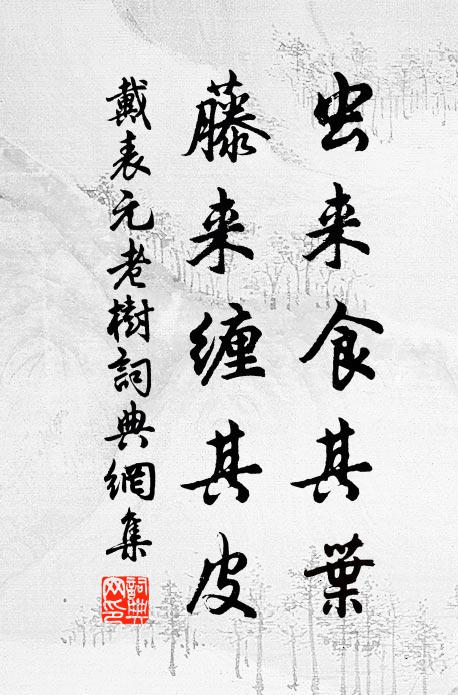 虫来食其葉
藤来缠其皮
戴表元老樹詞典網集
詞典